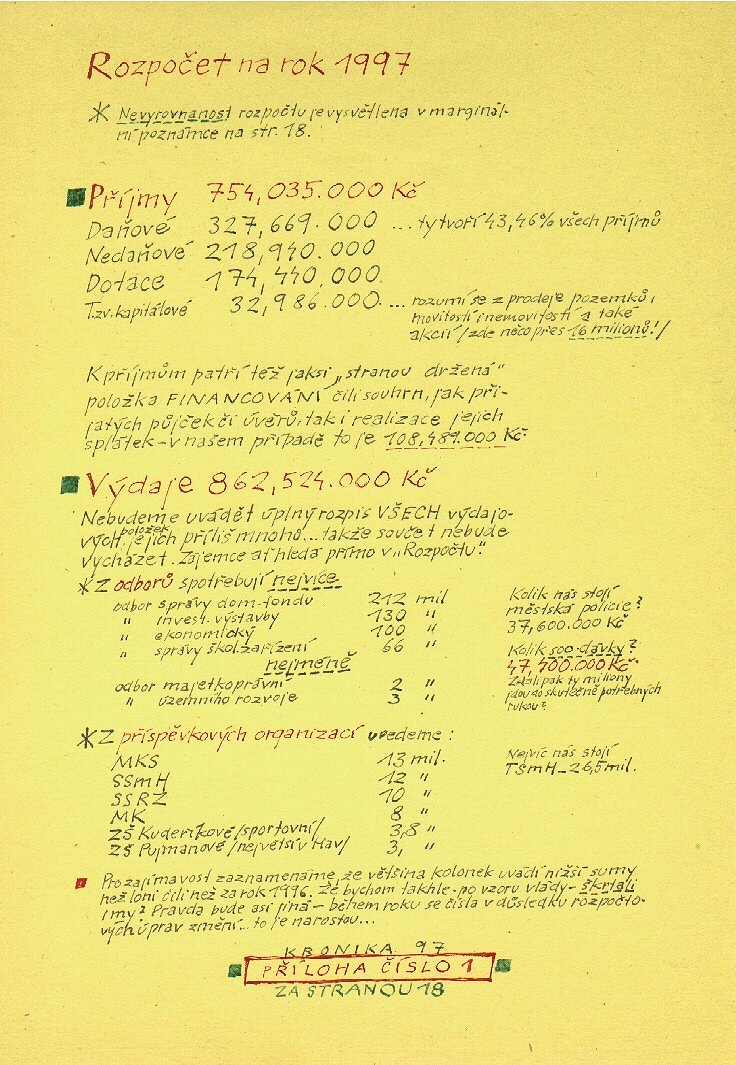 Rozpočet na rok 1997
* Nevyrovnanost rozpočtu je vysvětlena v marginál-
ní poznámce na str. 18.
Příjmy 754,035.000 Kč
Daňové 327,669.000 ... ty tvoří 43,46% všech příjmů
Nedaňové 218,940.000
Dotace 174,440,000.
Tzv. kapitálové 32,986.000 ... rozumí se z prodeje pozemků,
movitostí i nemovitostí a také
akcií /zde něco přes 16 milionů!/
K příjmům patří též jaksi „stranou držená"
položka FINANCOVÁNÍ čili souhrn, jak při-
jatých půjček či úvěrů, tak i realizace jejich
splátek - v našem případě to je 108,489.000 Kč.
Výdaje 862,524.000 Kč
Nebudeme uvádět úplný rozpis VŠECH výdajo-
vých položek, je jich příliš mnoho... takže součet nebude
vycházet. Zájemce ať hledá přímo v „Rozpočtu".
* Z odborů spotřebují nejvíce
odbor správy dom. fondu 212 mil
" invest. výstavby 130 "
" ekonomický 100 "
" správy škol. zařízení 66 "
nejméně
odbor majetkoprávní 2 "
" územního rozvoje 3 "
Kolik nás stojí
městská policie?
37,600.000 Kč
Kolik soc. dávky?
47,400.000 Kč.
Zdali pak ty miliony
jdou do skutečně potřebných
rukou?
* Z příspěvkových organizací uvedeme:
MKS 13 mil.
SSmH 12 "
SSRZ 10 "
MK 8 "
ZŠ Kudeříkové /sportovní/ 3,8 "
ZŠ Pujmanové /největší v Hav/ 3, "
Nejvíc nás stojí
TSmH - 26,5 mil.
Pro zajímavost zaznamenáme, že většina kolonek uvádí nižší sumy
než loni čili než za rok 1996. Že bychom takhle - po vzoru vlády - škrtali
i my? Pravda bude asi jiná - během roku se čísla v důsledku rozpočto-
vých úprav změní... to je narostou...
KRONIKA 97
PŘÍLOHA ČÍSLO 1
ZA STRANOU 18